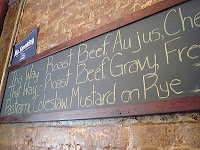 No Smoking
This Way - Roast Beef Au jus, Che
That Way - Roast Beef Gravy, Fre
Pastrami, Coleslaw, Mustard on Rye